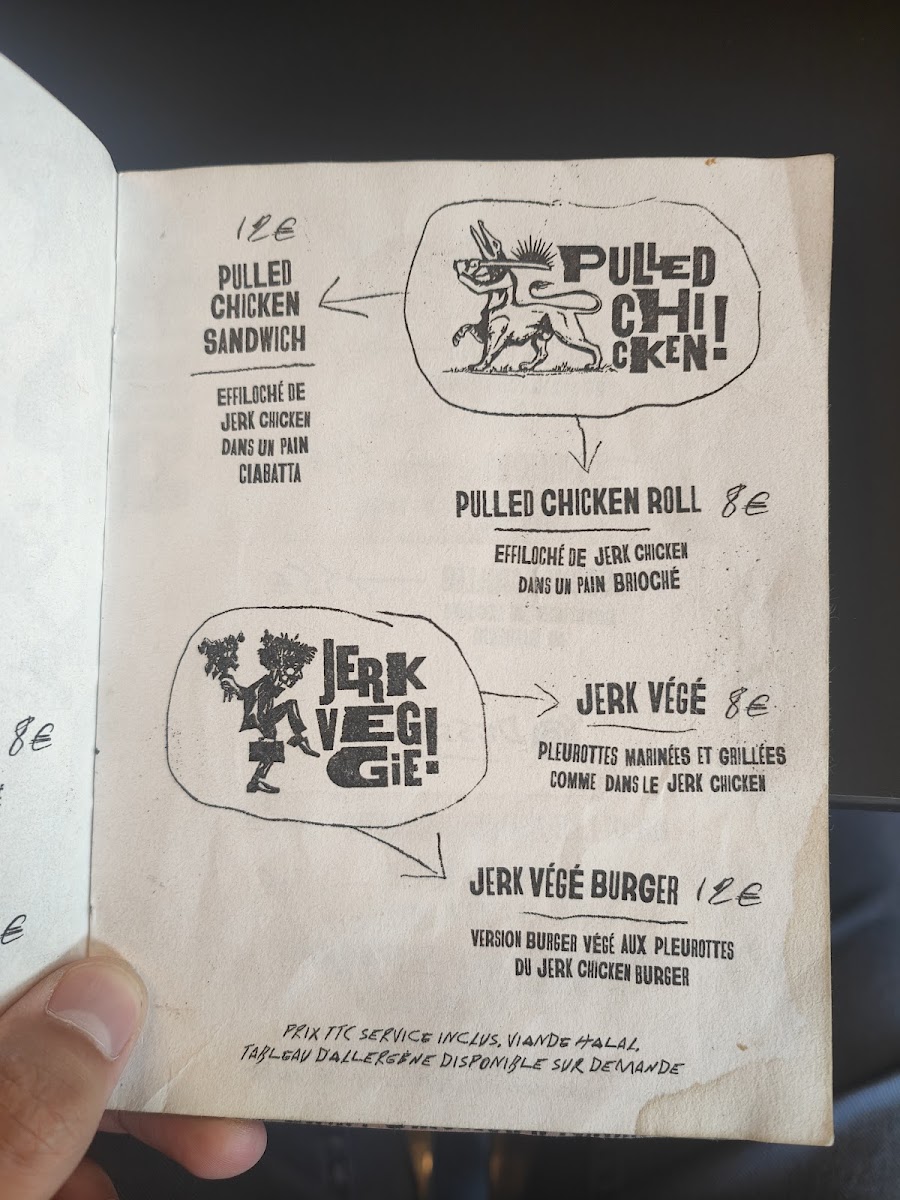 12€
PULLED
CHICKEN
SANDWICH
EFFILOCHÉ DE
JERK CHICKEN
DANS UN PAIN
CIABATTA
PULLED
CHI
CKEN!
PULLED CHICKEN ROLL 8€
EFFILOCHÉ DE JERK CHICKEN
DANS UN PAIN BRIOCHÉ
JERK
VEG
GIE!
JERK VÉGÉ 8€
PLEUROTTES MARINÉES ET GRILLÉES
COMME DANS LE JERK CHICKEN
8€
€
JERK VÉGÉ BURGER 12€
VERSION BURGER VÉGÉ AUX PLEUROTTES
DU JERK CHICKEN BURGER
PRIX TTC SERVICE INCLUS, VIANDE HALAL,
TABLEAU D'ALLERGÈNE DISPONIBLE SUR DEMANDE